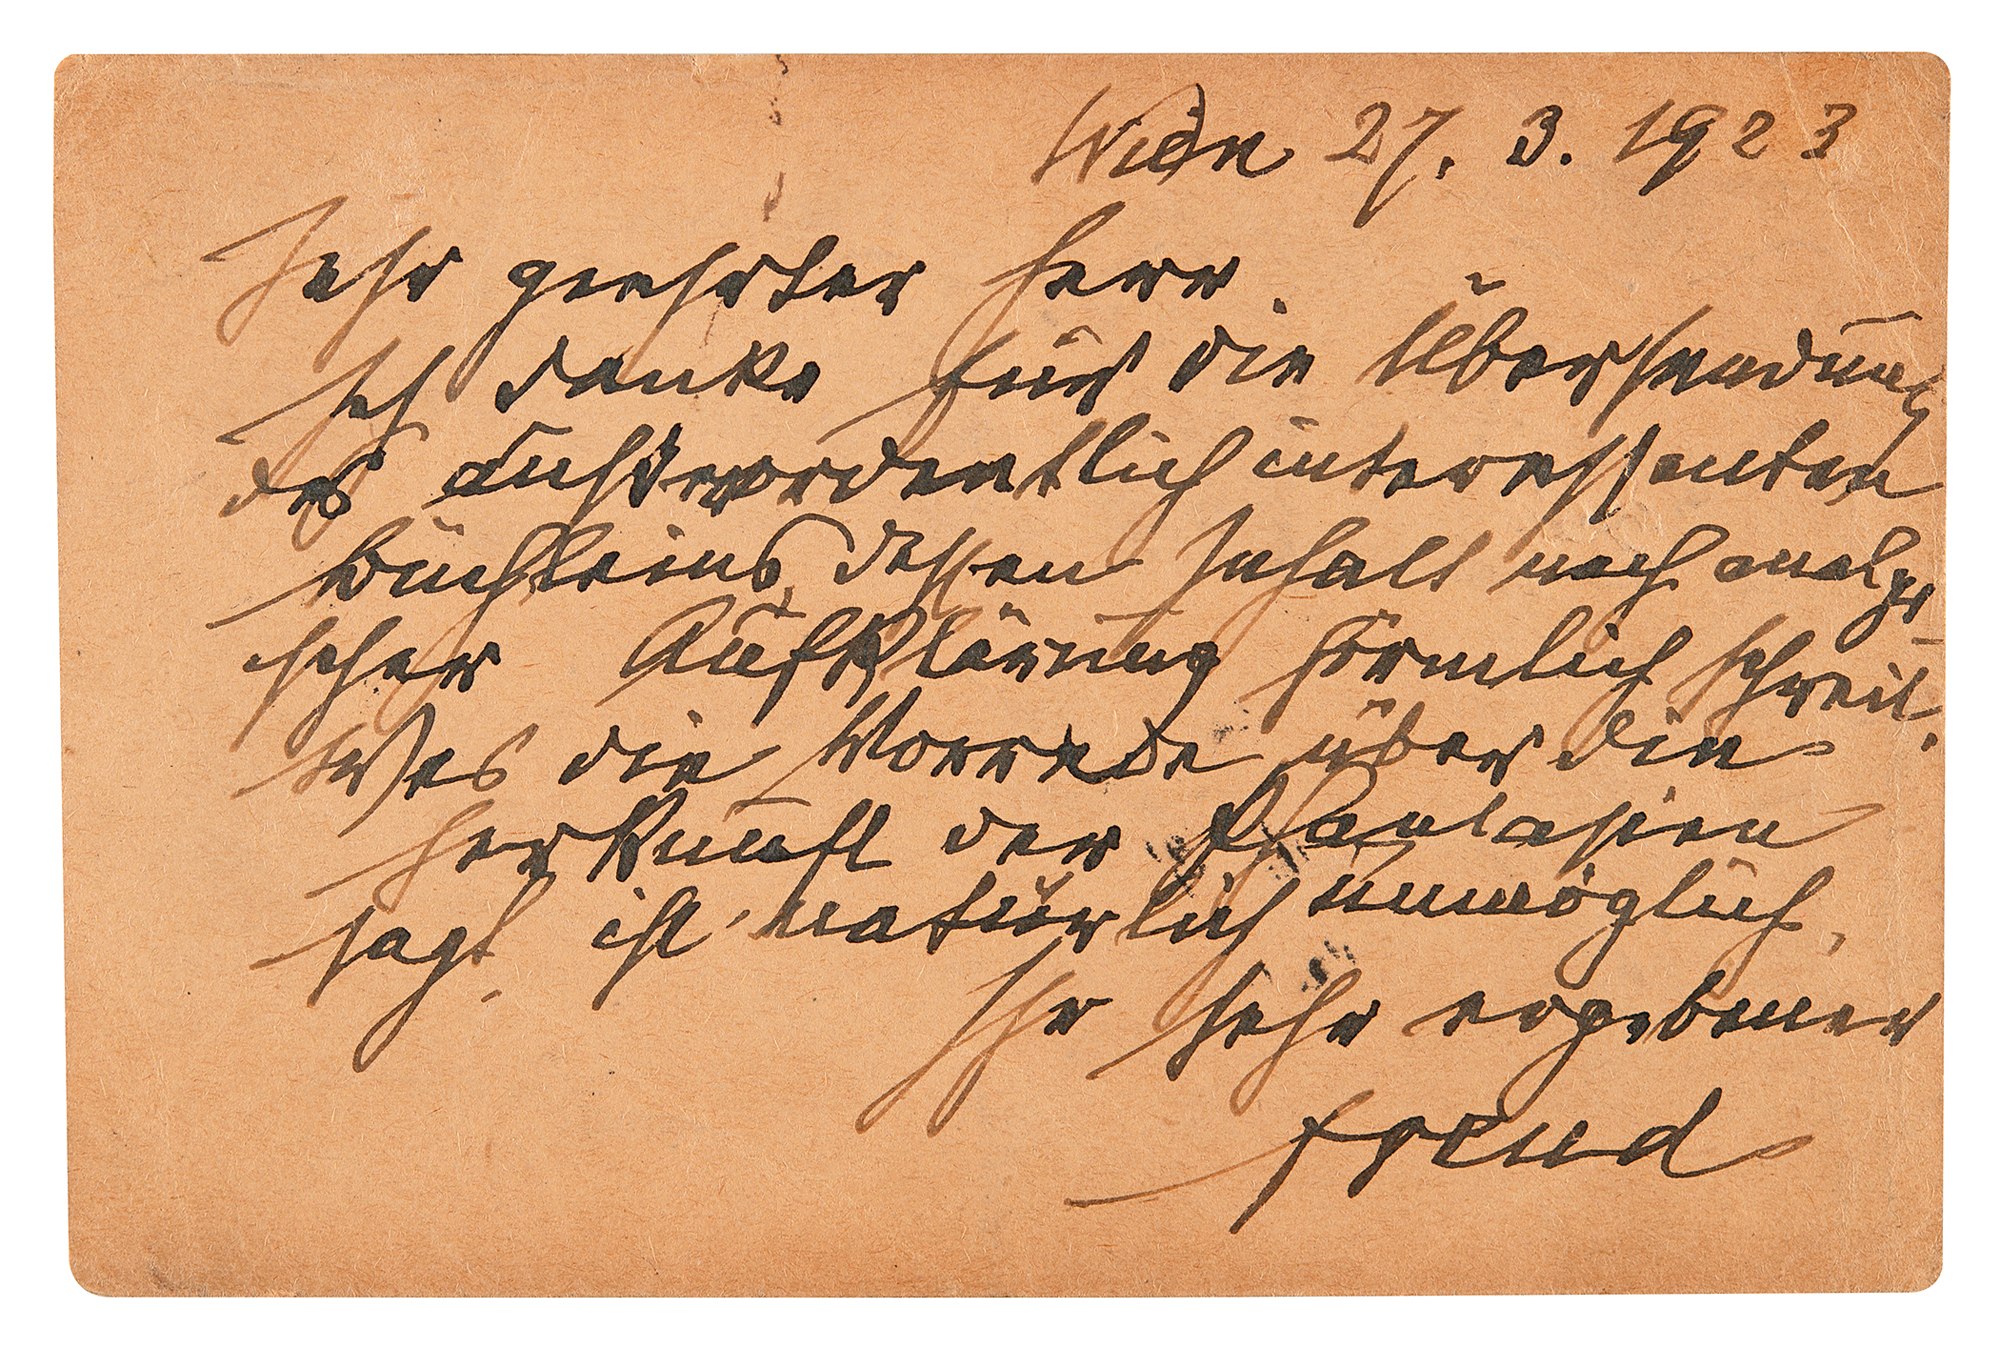 Wien 27. 3. 1923
Sehr geehrter Herr.
Ich danke für die Übersendung
des außerordentlich interessanten
Büchleins, dessen Inhalt nach analyti
scher Aufklärung förmlich schreit.
Was die Vorrede über die
Herkunft der Phantasien
sagt, ist natürlich unmöglich.
Ihr sehr ergebener
Freud